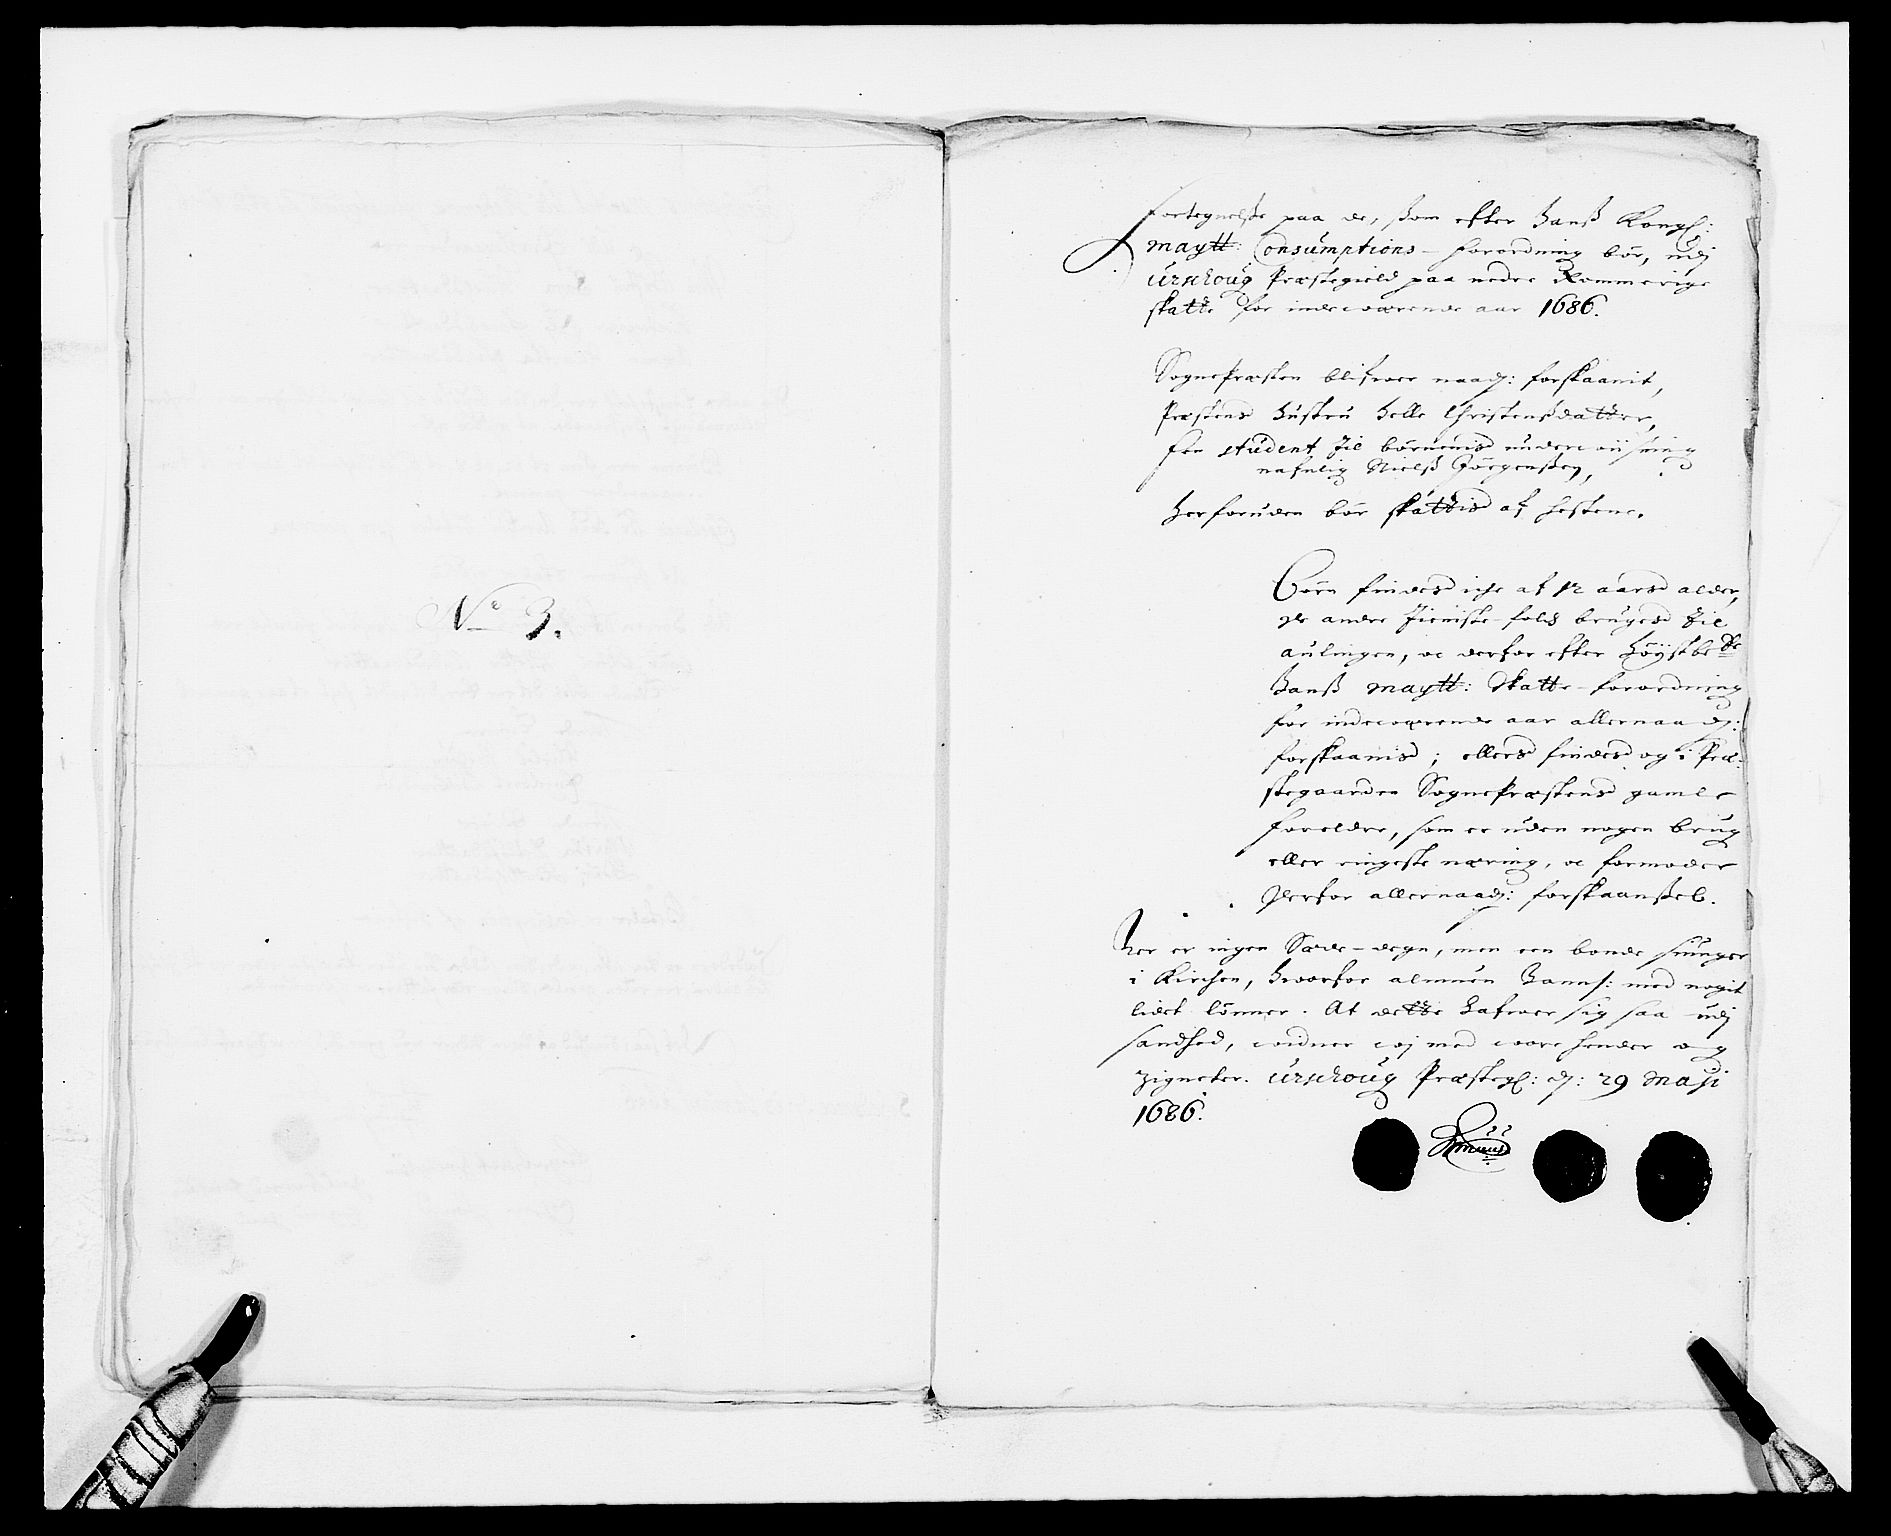 No 3.
Fortegnelsse paa de, ssom efter Hanß Kongl:
maytt: Consumptions-forordning bör, udj
Urschoug Præstegield paa nedre Rommerige
skatte for indewærende aar 1686.
SognePræsten blifwer naad: forskaanit,
Præstens Hustru Helle Christenßdatter,
Een student til börnenis underwiisning
nafnlig Nielß Jörgenßen,
Herforuden bör skattis af hestene.
Börn findes iche af 12 aars alder,
de andre Tieniste-folch bruges til
aulingen, oc derfor efter Höystbe.de
Hanß maytt: Skatte-forordning
for indewærende aar allernaad:
forskaanis; ellers findes og i Præ-
stegaarden SognePræstens gamle
foreldre, som er uden nogen brug
eller ringeste næring, oc formoder
derfor allernaad: forskaanßel.
Her er ingen Sæde-degn, men een bonde siunger
i Kirchen, hworfor almuen hannem: med nogit
lidet lönner. At dette hafwer sig saa udj
sandhed, widner wj med wore hender og
zigneter. Urschoug Præstegl: d: 29 Maji
1686.